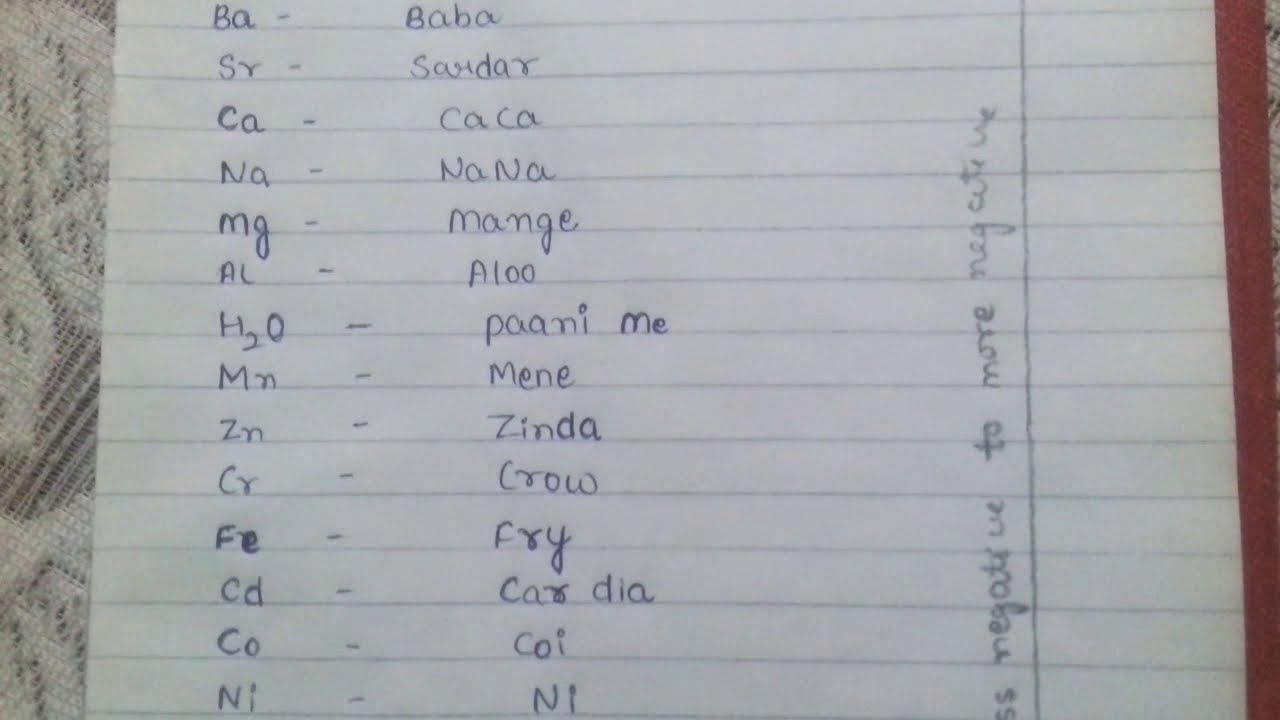 Ba - Baba
Sr - Sardar
Ca - CaCa
Na - NaNa
Mg - Mange
Al - Aloo
H₂O - paani me
Mn - Mene
Zn - Zinda
Cr - Crow
Fe - Fry
Cd - Car dia
Co - Coi
Ni - Ni
ss negative to more negative